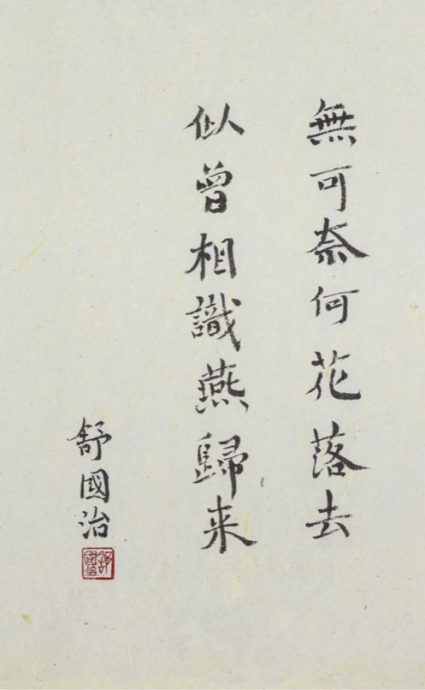 無可奈何花落去
似曾相識燕歸来
舒國治